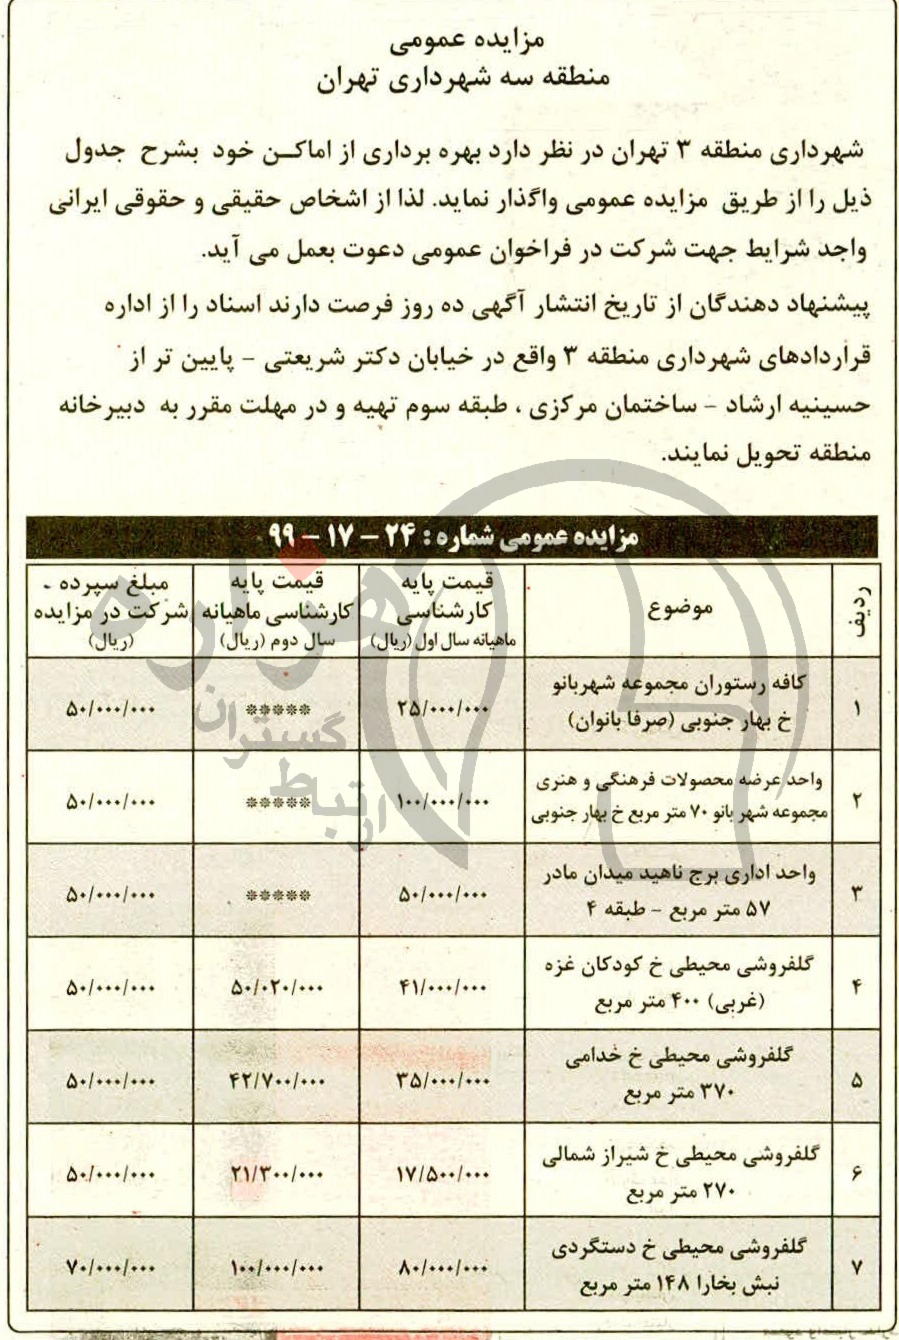 مزایده عمومی
منطقه سه شهرداری تهران
شهرداری منطقه ۳ تهران در نظر دارد بهره برداری از اماکن خود بشرح جدول
ذیل را از طریق مزایده عمومی واگذار نماید. لذا از اشخاص حقیقی و حقوقی ایرانی
واجد شرایط جهت شرکت در فراخوان عمومی دعوت بعمل می آید.
پیشنهاد دهندگان از تاریخ انتشار آگهی ده روز فرصت دارند اسناد را از اداره
قراردادهای شهرداری منطقه ۳ واقع در خیابان دکتر شریعتی - پایین تر از
حسینیه ارشاد - ساختمان مرکزی ، طبقه سوم تهیه و در مهلت مقرر به دبیرخانه
منطقه تحویل نمایند.
مزایده عمومی شماره : ۲۴ - ۱۷ - ۹۹
ردیف
موضوع
قیمت پایه
کارشناسی
ماهیانه سال اول (ریال)
قیمت پایه
کارشناسی ماهیانه
سال دوم (ریال)
مبلغ سپرده
شرکت در مزایده
(ریال)
۱
کافه رستوران مجموعه شهربانو
خ بهار جنوبی (صرفا بانوان)
۲۵/۰۰۰/۰۰۰
*****
۵۰/۰۰۰/۰۰۰
۲
واحد عرضه محصولات فرهنگی و هنری
مجموعه شهر بانو ۷۰ متر مربع خ بهار جنوبی
۱۰۰/۰۰۰/۰۰۰
*****
۵۰/۰۰۰/۰۰۰
۳
واحد اداری برج ناهید میدان مادر
۵۷ متر مربع - طبقه ۴
۵۰/۰۰۰/۰۰۰
*****
۵۰/۰۰۰/۰۰۰
۴
گلفروشی محیطی خ کودکان غزه
(غربی) ۴۰۰ متر مربع
۴۱/۰۰۰/۰۰۰
۵۰/۰۲۰/۰۰۰
۵۰/۰۰۰/۰۰۰
۵
گلفروشی محیطی خ خدامی
۳۷۰ متر مربع
۳۵/۰۰۰/۰۰۰
۴۲/۷۰۰/۰۰۰
۵۰/۰۰۰/۰۰۰
۶
گلفروشی محیطی خ شیراز شمالی
۲۷۰ متر مربع
۱۷/۵۰۰/۰۰۰
۲۱/۳۰۰/۰۰۰
۵۰/۰۰۰/۰۰۰
۷
گلفروشی محیطی خ دستگردی
نبش بخارا ۱۴۸ متر مربع
۸۰/۰۰۰/۰۰۰
۱۰۰/۰۰۰/۰۰۰
۷۰/۰۰۰/۰۰۰
هزاره
گستران
ارتباط